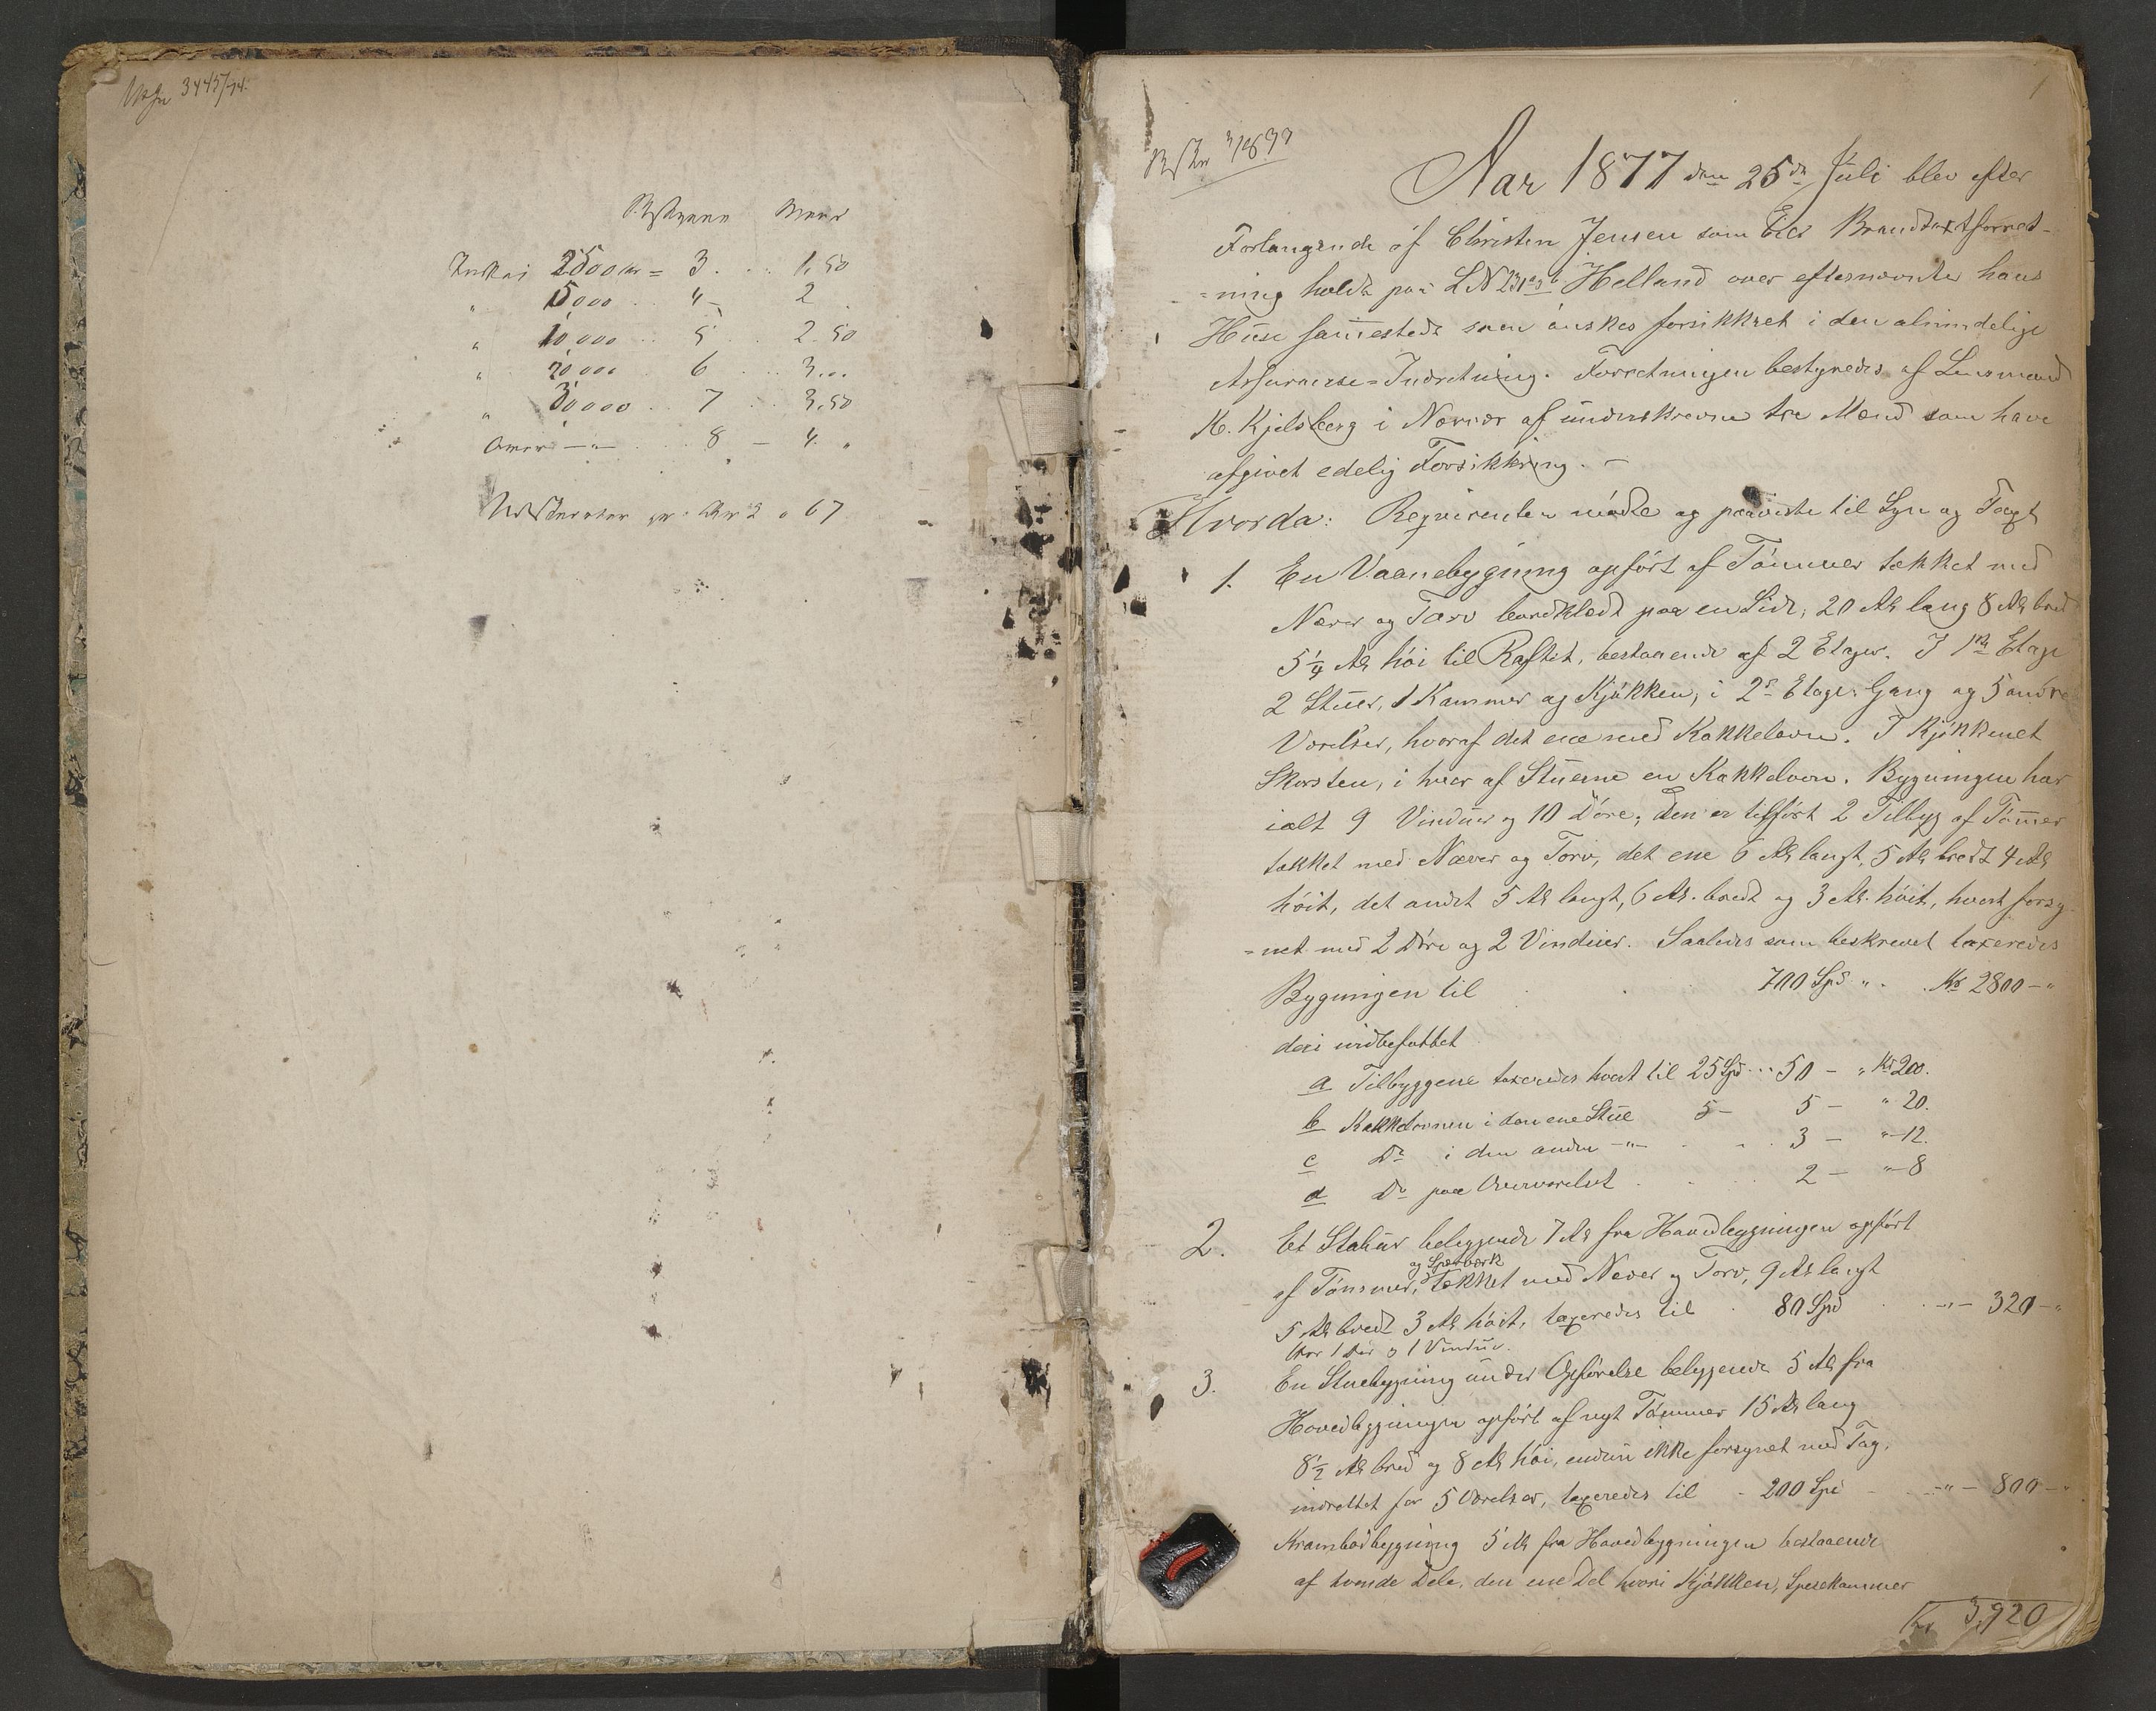 3445/94.
Bestyrer Mænd
Indtil 2500 Kr = 3 . . . 1,50
" 5000 . . 4 - 2
" 10,000 . . 5 . . 2.50
" 20,000 . . 6 . . . 3...
" 30000 . . 7 . . 3,50
Over —"— . . 8 — 4. "
pr. 2 " 67
1
Aar 1877 den 25de Juli blev efter
Forlangende af Christen Jensen som Eier Brandtaxtforret-
=ning holdt paa LN 231 Helland over efternævnte hans
Huse sammesteds som ønskes forsikkret i den almindelige
Assurance=Indretning. Forretningen bestyredes af Lensmand
K. Kjelsberg i Nærvær af underskrevne tre Mænd som have
afgivet edelig Forsikkring. —
Hvorda: Reqvirenten mødte og paaviste til Syn og Taxt
1. En Vaanebygning opført af Tømmer tækket med
Næver og Tørv bordklædt paa en Side, 20 Al lang 8 Al bred
5 1/4 Al høi til Raftet, bestaaende af 2 Etager. I 1ste Etage
2 Stuer, 1 Kammer og Kjøkken, i 2den Etage: Gang og 5 andre
Værelser, hvoraf det ene med Kakkelovn. I Kjøkkenet
Skorsten, i hver af Stuerne en Kakkelovn. Bygningen har
ialt 9 Vinduer og 10 Døre; den er tilført 2 Tilbyg af Tømmer
tækket med Næver og Torv, det ene 6 Al langt, 5 Al bredt 4 Al
høit, det andet 5 Al langt, 6 Al. bredt og 3 Al. høit, hvert forsy-
=net med 2 Døre og 2 Vinduer. Saaledes som beskrevet taxeredes
Bygningen til . . . 700 Spd " . . Kr 2800 — "
deri indbefattet
a Tilbyggene taxeredes hvert til 25 Spd . . . 50 — " Kr 200.
b Kakkelovnen i den ene Stue 5 — 5 — " 20.
c Do i den anden —"— . . . 3 — " — 12.
d Do paa Overværelset . . . 2 — " — 8
2. Et Stabur beliggende 7 Al fra Hovedbygningen opført
og Sperværk
af Tømmer, tækket med Næver og Torv, 9 Al langt
5 Al bredt 3 Al høit, taxeredes til . 80 Spd . . —"— 320 — "
har 1 Dør og 1 Vindue.
3. En Stuebygning under Opførelse beliggende 5 Al fra
Hovedbygningen opført af nyt Tømmer 15 Al lang
8 1/2 Al bred og 8 Al høi, endnu ikke forsynet med Tag,
indrettet for 5 Værelser, taxeredes til - 200 Spd - . —"— 800 — "
Krambodbygning 5 Al fra Hovedbygningen bestaaende
af tvende Dele, den ene Del hvori Kjøkken, Spisekammer
Kr 3,920